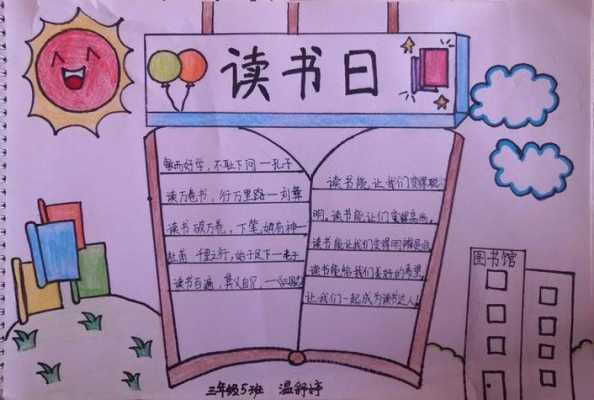 读书日
敏而好学，不耻下问一孔子
读万卷书，行万里路一刘彝
读书破万卷，下笔如有神一
千里之行，始于足下一老子
读书百遍，其义自见，一
读书能让我们变得聪
明，读书能让我们
读书能让我们变得明
读书能给我们美好的希望，
让我们一起成为读书达人！
图书馆
三年级5班 温舒婷